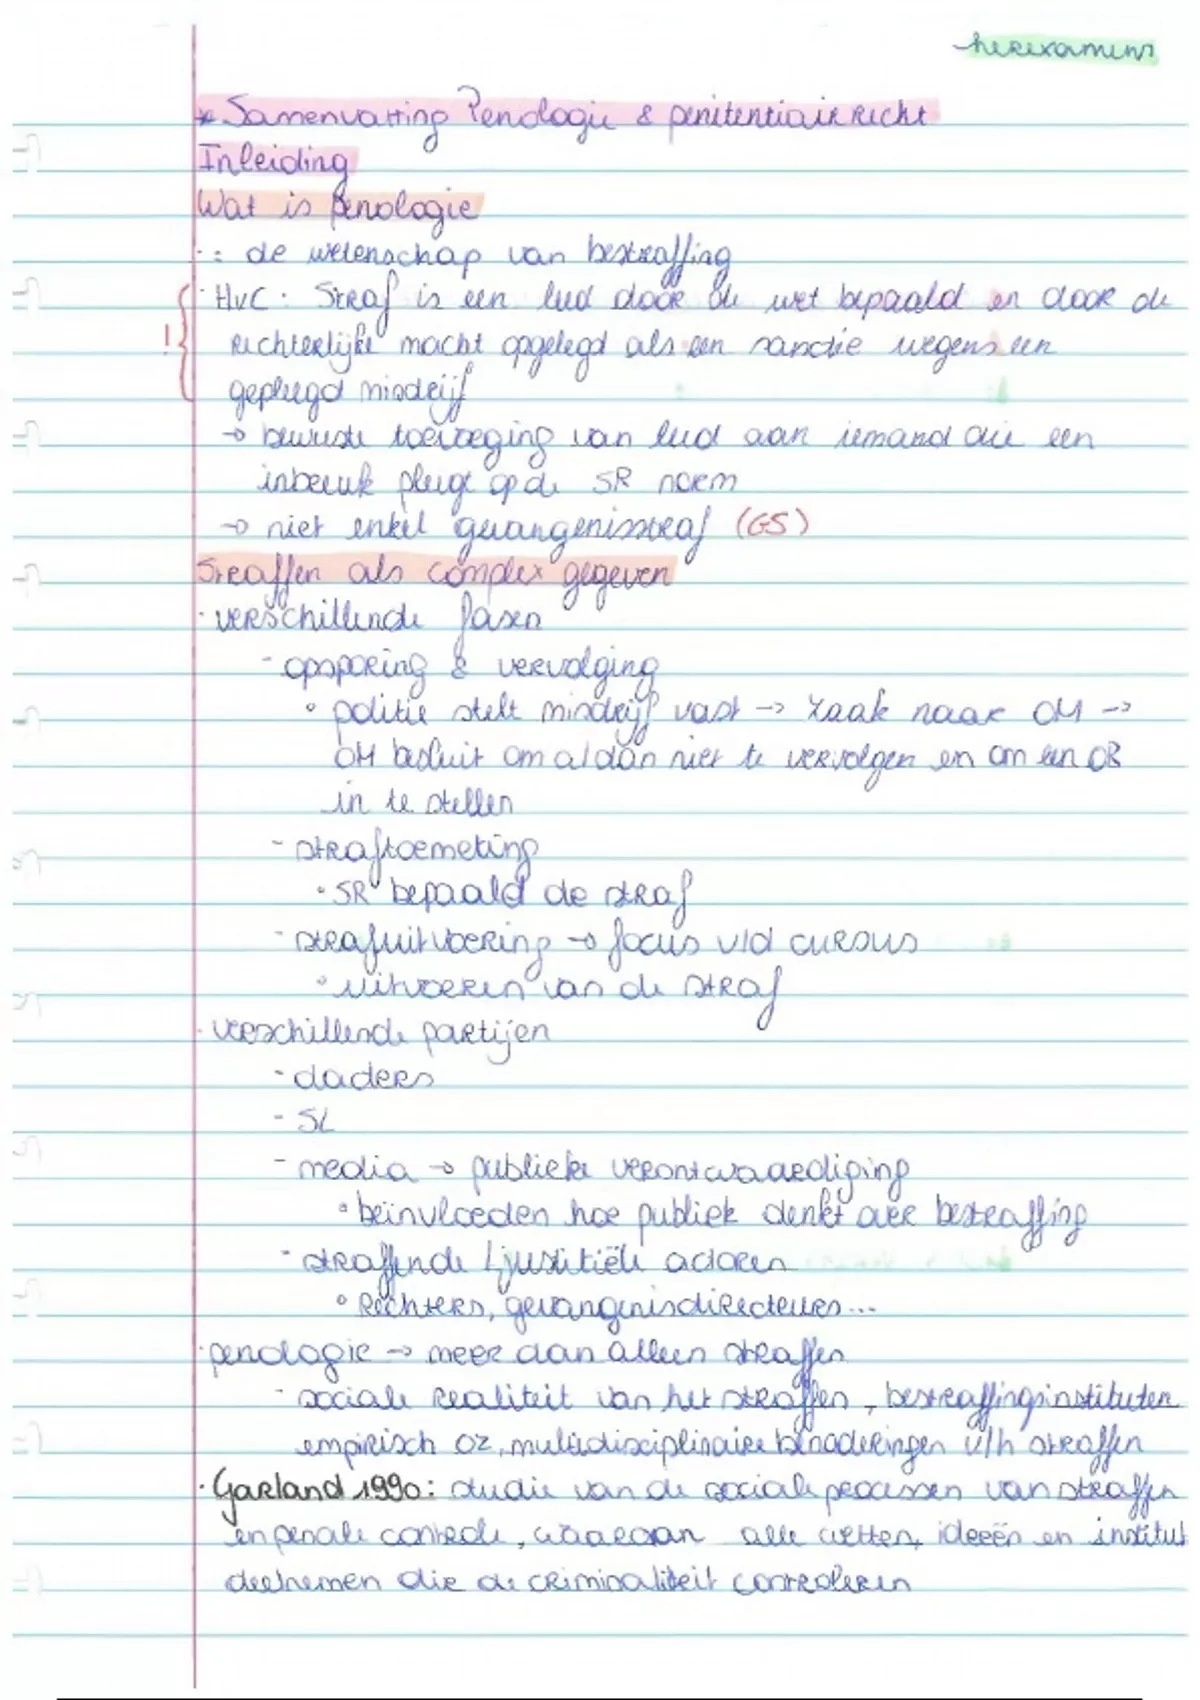 herexamen
* Samenvatting Penologie & penitentiair Recht
Inleiding
Wat is penologie
·: de wetenschap van bestraffing
! · HvC: Straf is een leed door de wet bepaald en door de
Rechterlijke macht opgelegd als een sanctie wegens een
gepleegd misdrijf
→ bewuste toevoeging van leed aan iemand die een
inbreuk pleegt op de SR norm
→ niet enkel gevangenisstraf (GS)
Straffen als complex gegeven
· verschillende fasen
- opsporing & vervolging
° politie stelt misdrijf vast → zaak naar OM →
OM besluit om al dan niet te vervolgen en om een OR
in te stellen
- straftoemeting
· SR bepaald de straf
- strafuitvoering → focus v/d cursus
° uitvoeren van de straf
· verschillende partijen
- daders
- SL
- media → publieke verontwaardiging
° beïnvloeden hoe publiek denkt over bestraffing
- straffende / justitiële actoren
° Rechters, gevangenisdirecteurs...
· penologie → meer dan alleen straffen
- sociale realiteit van het straffen, bestraffingsinstituten
empirisch OZ, multidisciplinaire benaderingen v/h straffen
· Garland 1990: studie van de sociale processen van straffen
en penale controle, waaraan alle wetten, ideeën en institut
deelnemen die de criminaliteit controleren